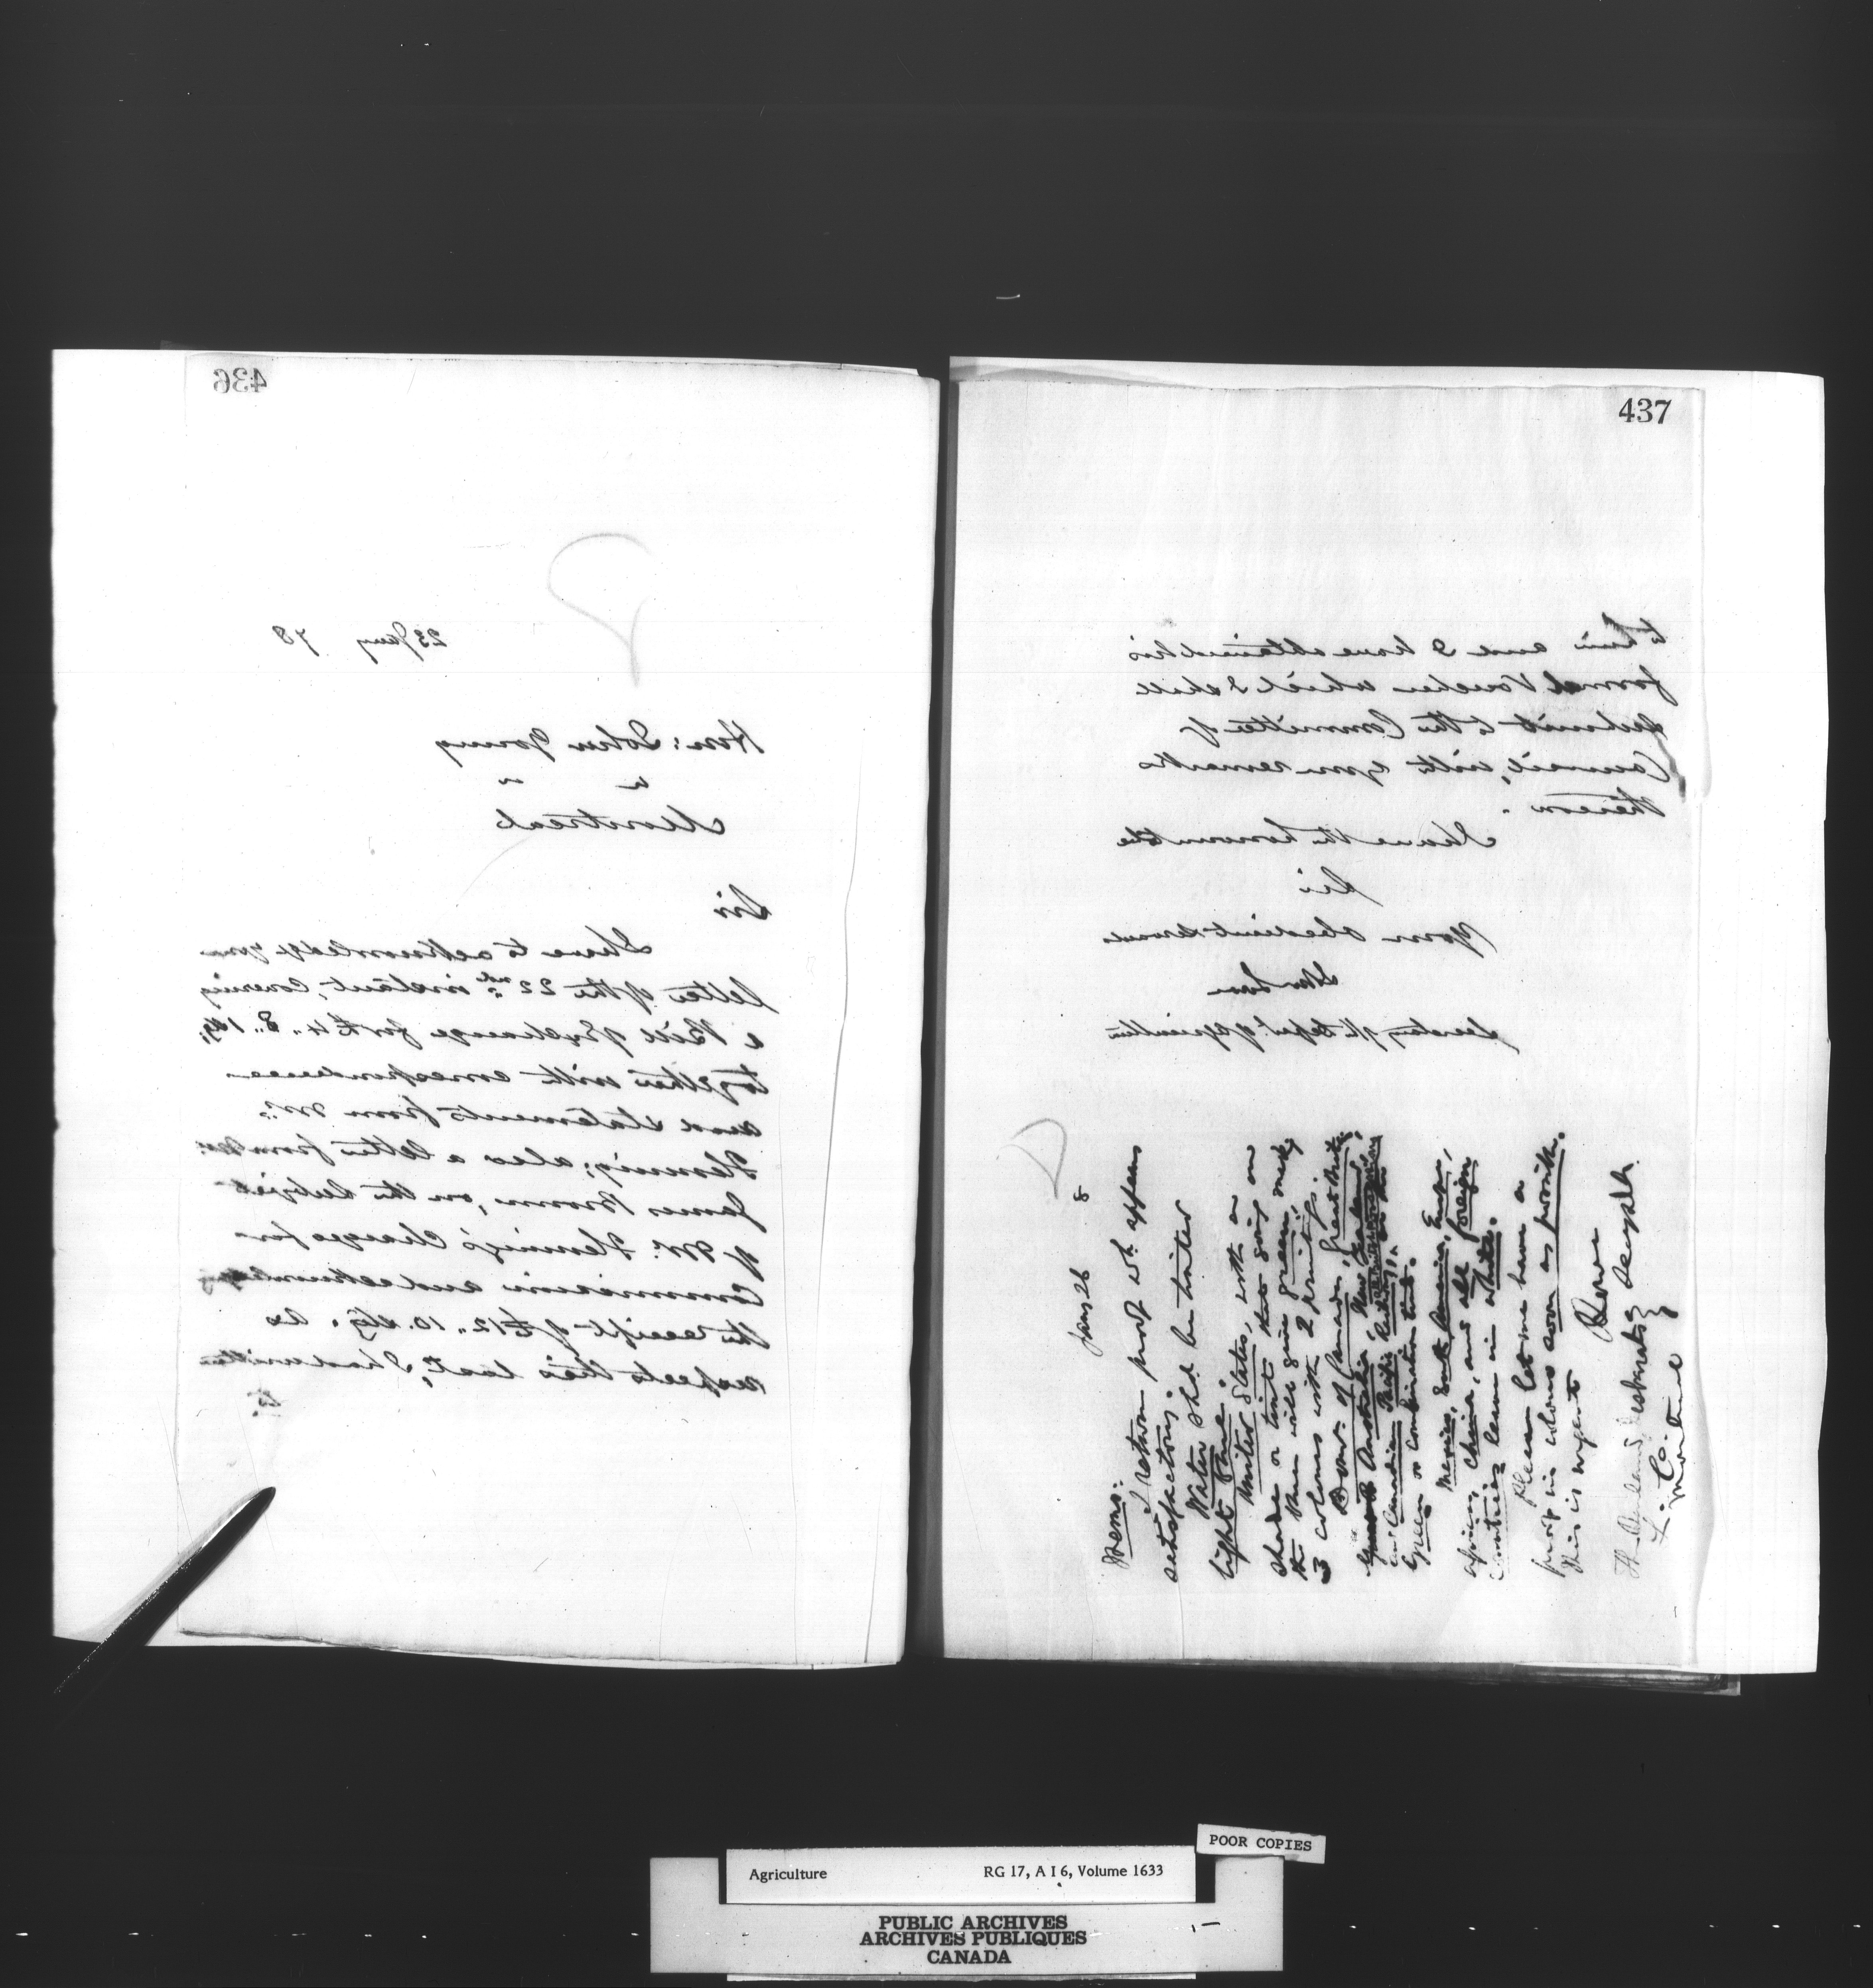 436
23 Jany 78
Hon: John Young
Montreal
Sir
I have to acknowledge your
letter of the 22nd instant, covering
a Bill of Exchange for £4.. 3.. 1 stg,
together with correspondence
and statements from Mr.
Fleming; also a letter from
James Brown, on the subject
of Mr. Fleming's charges for
Commission and acknowledging
the receipt of £12.. 10. stg. As
respects this last, I had written
to
437
to him and I have obtained his
formal Voucher which I shall
submit to the Committee of
Council, with your remarks
thereon.
I have the honour to be
Sir
Your obedient servant
Secretary of the Dept. of Agriculture
Jany 26 8
Memo:
I return proof wh. appears
satisfactory.
Water shd. be printed
light blue.
United States, with a
shade or tint thus going over
the blue will give green, making
3 colours with 2 printings.
Domn. of Canada, Great Britain,
Australia, New Zealand,
Canadian Pacific Railway,
green or combination tint.
Mexico, South America, Europe,
Africa, China, and all foreign
countries leave in white.
Please let me have a
proof in colours soon as possible.
This is urgent
Desbarats
Montreal
Agriculture RG 17, A I 6, Volume 1633
POOR COPIES
PUBLIC ARCHIVES
ARCHIVES PUBLIQUES
CANADA